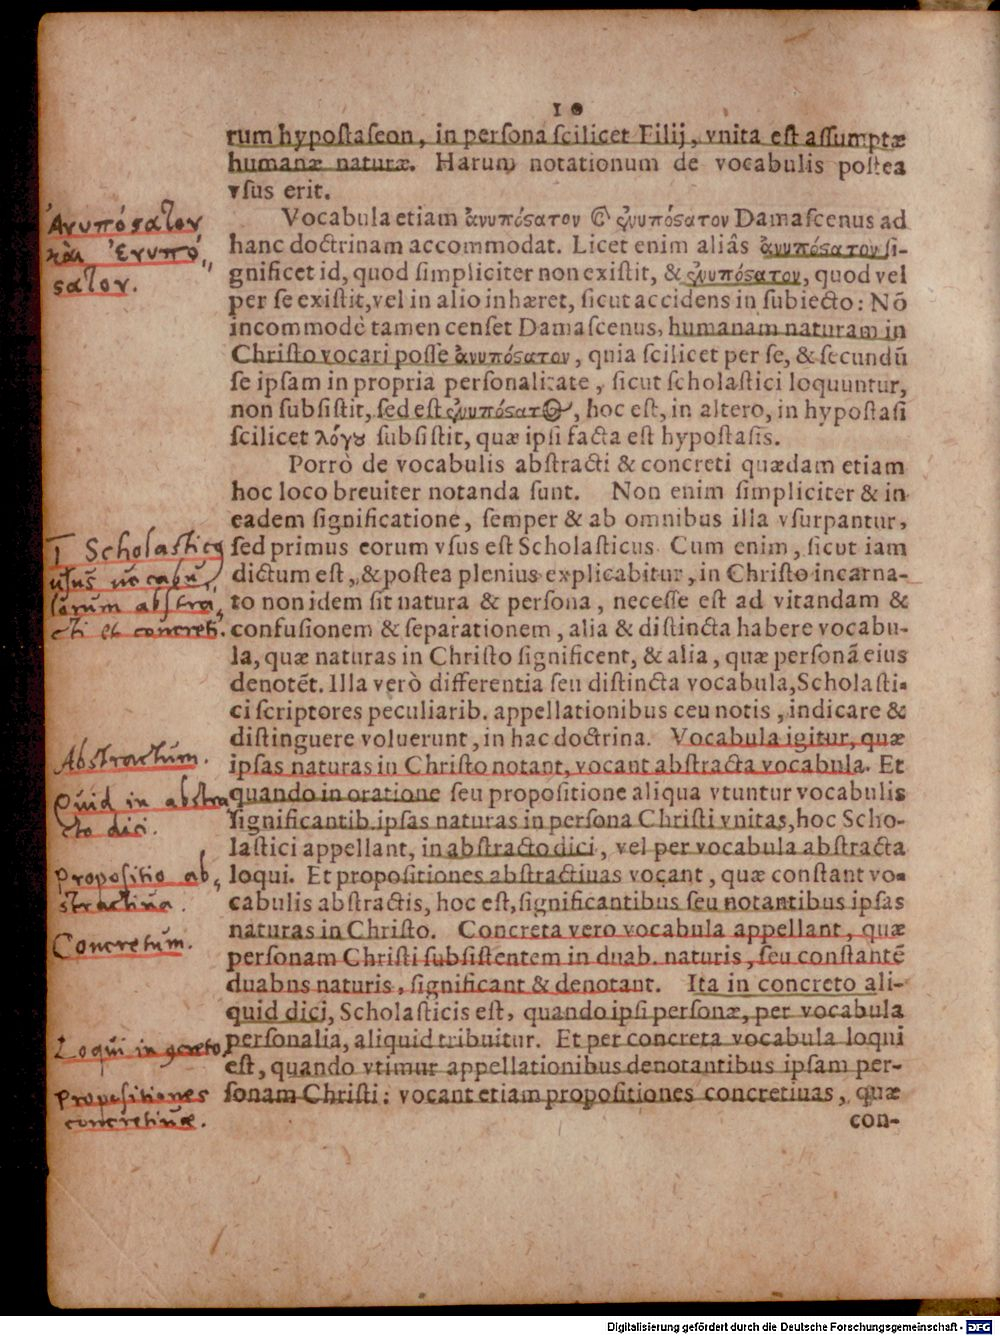 10
rum hypostaseωn, in persona scilicet Filij, vnita est assumptæ
humanæ naturæ. Harum notationum de vocabulis postea
vsus erit.
Vocabula etiam ἀνυπόϛατον & ἐνυπόϛατον Damascenus ad
hanc doctrinam accommodat. Licet enim aliâs ἀνυπόϛατον si-
gnificet id, quod simpliciter non existit, & ἐνυπόϛατον, quod vel
per se existit, vel in alio inhæret, sicut accidens in subiecto: Nõ
incommodè tamen censet Damascenus, humanam naturam in
Christo vocari posse ἀνυπόϛατον, quia scilicet per se, & secundũ
se ipsam in propria personalitate, sicut scholastici loquuntur,
non subsistit, sed est ἐνυπόϛατος, hoc est, in altero, in hypostasi
scilicet λόγȣ subsistit, quæ ipsi facta est hypostasis.
Porrò de vocabulis abstracti & concreti quædam etiam
hoc loco breuiter notanda sunt. Non enim simpliciter & in
eadem significatione, semper & ab omnibus illa vsurpantur,
sed primus eorum vsus est Scholasticus. Cum enim, sicut iam
dictum est, & postea plenius explicabitur, in Christo incarna-
to non idem sit natura & persona, necesse est ad vitandam &
confusionem & separationem, alia & distincta habere vocabu-
la, quæ naturas in Christo significent, & alia, quæ personã eius
denotẽt. Illa verò differentia seu distincta vocabula, Scholasti-
ci scriptores peculiarib. appellationibus ceu notis, indicare &
distinguere voluerunt, in hac doctrina. Vocabula igitur, quæ
ipsas naturas in Christo notant, vocant abstracta vocabula. Et
quando in oratione seu propositione aliqua vtuntur vocabulis
significantib. ipsas naturas in persona Christi vnitas, hoc Scho-
lastici appellant, in abstracto dici, vel per vocabula abstracta
loqui. Et propositiones abstractiuas vocant, quæ constant vo-
cabulis abstractis, hoc est, significantibus seu notantibus ipsas
naturas in Christo. Concreta vero vocabula appellant, quæ
personam Christi subsistentem in duab. naturis, seu constantẽ
duabus naturis, significant & denotant. Ita in concreto ali-
quid dici, Scholasticis est, quando ipsi personæ, per vocabula
personalia, aliquid tribuitur. Et per concreta vocabula loqui
est, quando vtimur appellationibus denotantibus ipsam per-
sonam Christi: vocant etiam propositiones concretiuas, quæ
con-
Ἀνυπόϛατον
καὶ Ἐνυπό,,
ϛατον.
I Scholasticus
usus vocabu,
lorum abstra,
cti et concreti.
Abstractum.
Quid in abstra
cto dici.
Propositio ab,
stractiva.
Concretum.
Loqui in concreto.
Propositiones
concretivæ.
Digitalisierung gefördert durch die Deutsche Forschungsgemeinschaft - DFG